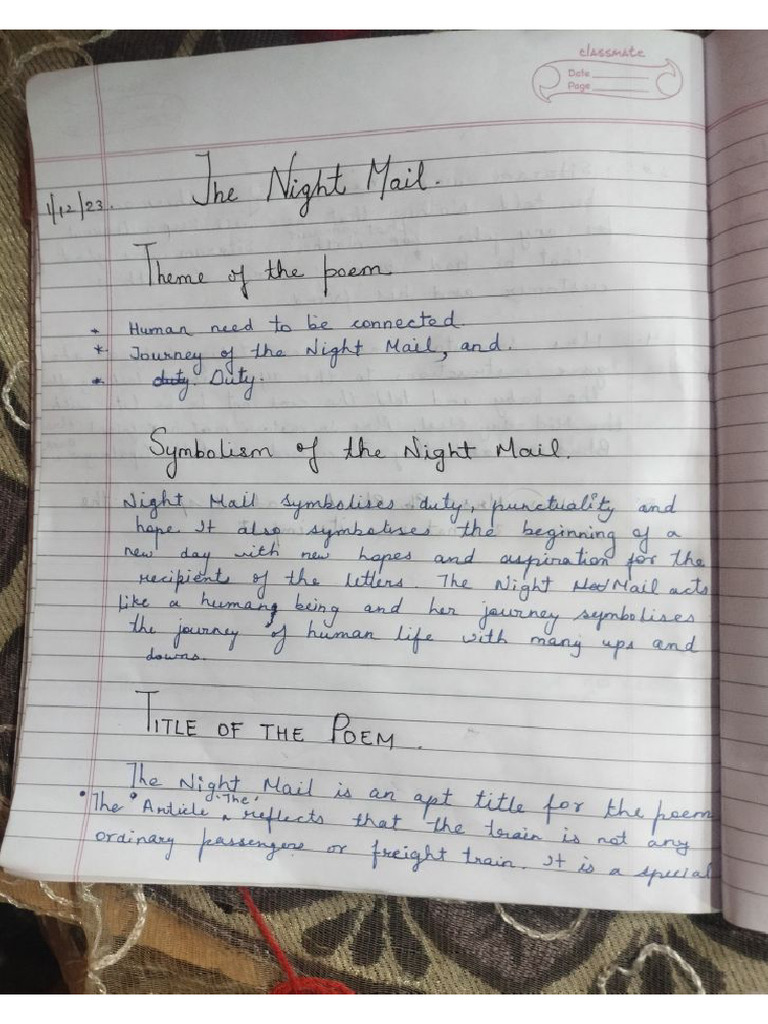 classmate
Date
Page
The Night Mail.
1/12/23.
Theme of the poem
* Human need to be connected.
* Journey of the Night Mail, and.
* duty. Duty.
Symbolism of the Night Mail.
Night Mail symbolises duty, punctuality and
hope. It also symbolises the beginning of a
new day with new hopes and aspiration for the
recipients of the letters. The Night Mail acts
like a human being and her journey symbolises
the journey of human life with many ups and
downs.
TITLE OF THE POEM.
The Night Mail is an apt title for the poem
• The Article 'The' reflects that the train is not any
ordinary passengers or freight train. It is a special